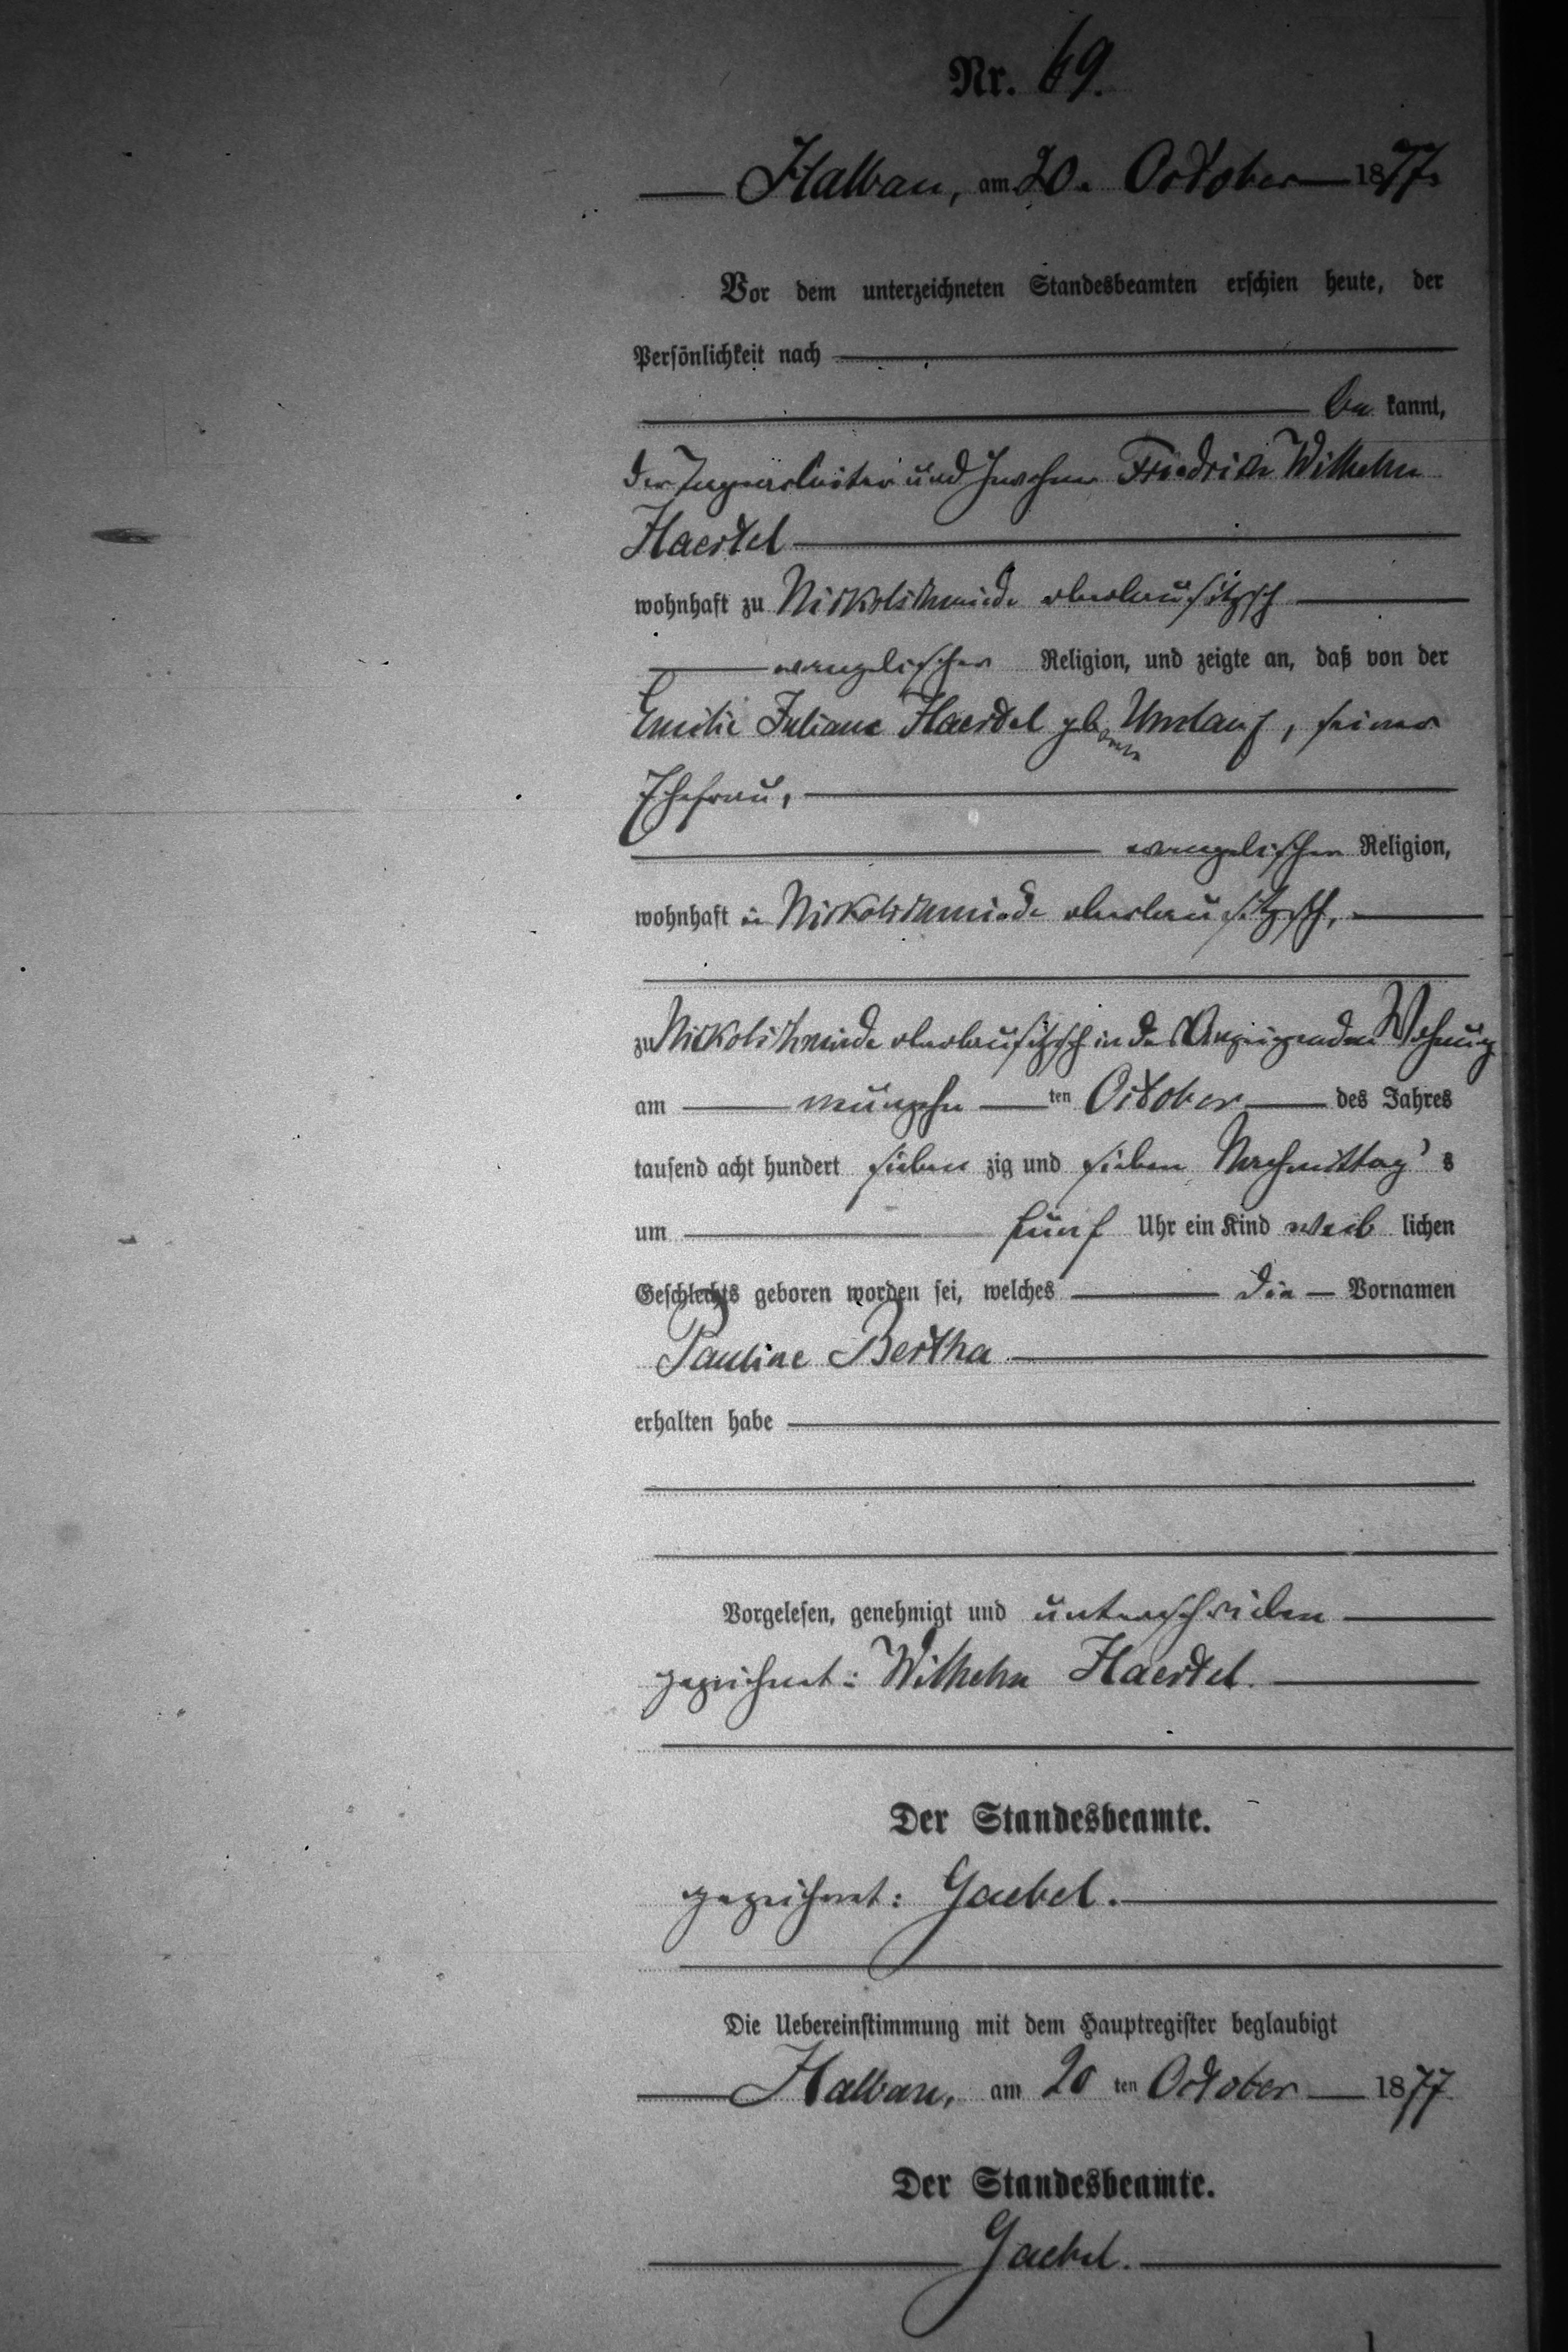 Nr. 69.
Halbau, am 20. October 1877.
Vor dem unterzeichneten Standesbeamten erschien heute, der
Persönlichkeit nach
be kannt,
der Tagearbeiter und Inwohner Friedrich Wilhelm
Haertel
wohnhaft zu Nickolschmiede oberlausitzsch
evangelischer Religion, und zeigte an, daß von der
Emilie Juliane Haertel geborene Umlauf, seiner
Ehefrau,
evangelischer Religion,
wohnhaft in Nickolschmiede oberlausitzsch,
zu Nickolschmiede oberlausitzsch in der Wohnung
am neunzehn ten October des Jahres
tausend acht hundert sieben zig und sieben Nachmittag's
um fünf Uhr ein Kind weib lichen
Geschlechts geboren worden sei, welches die Vornamen
Pauline Bertha
erhalten habe
Vorgelesen, genehmigt und unterschrieben
gezeichnet: Wilhelm Haertel.
Der Standesbeamte.
gezeichnet: Gaebel.
Die Uebereinstimmung mit dem Hauptregister beglaubigt
Halbau, am 20 ten October 1877
Der Standesbeamte.
Gaebel.